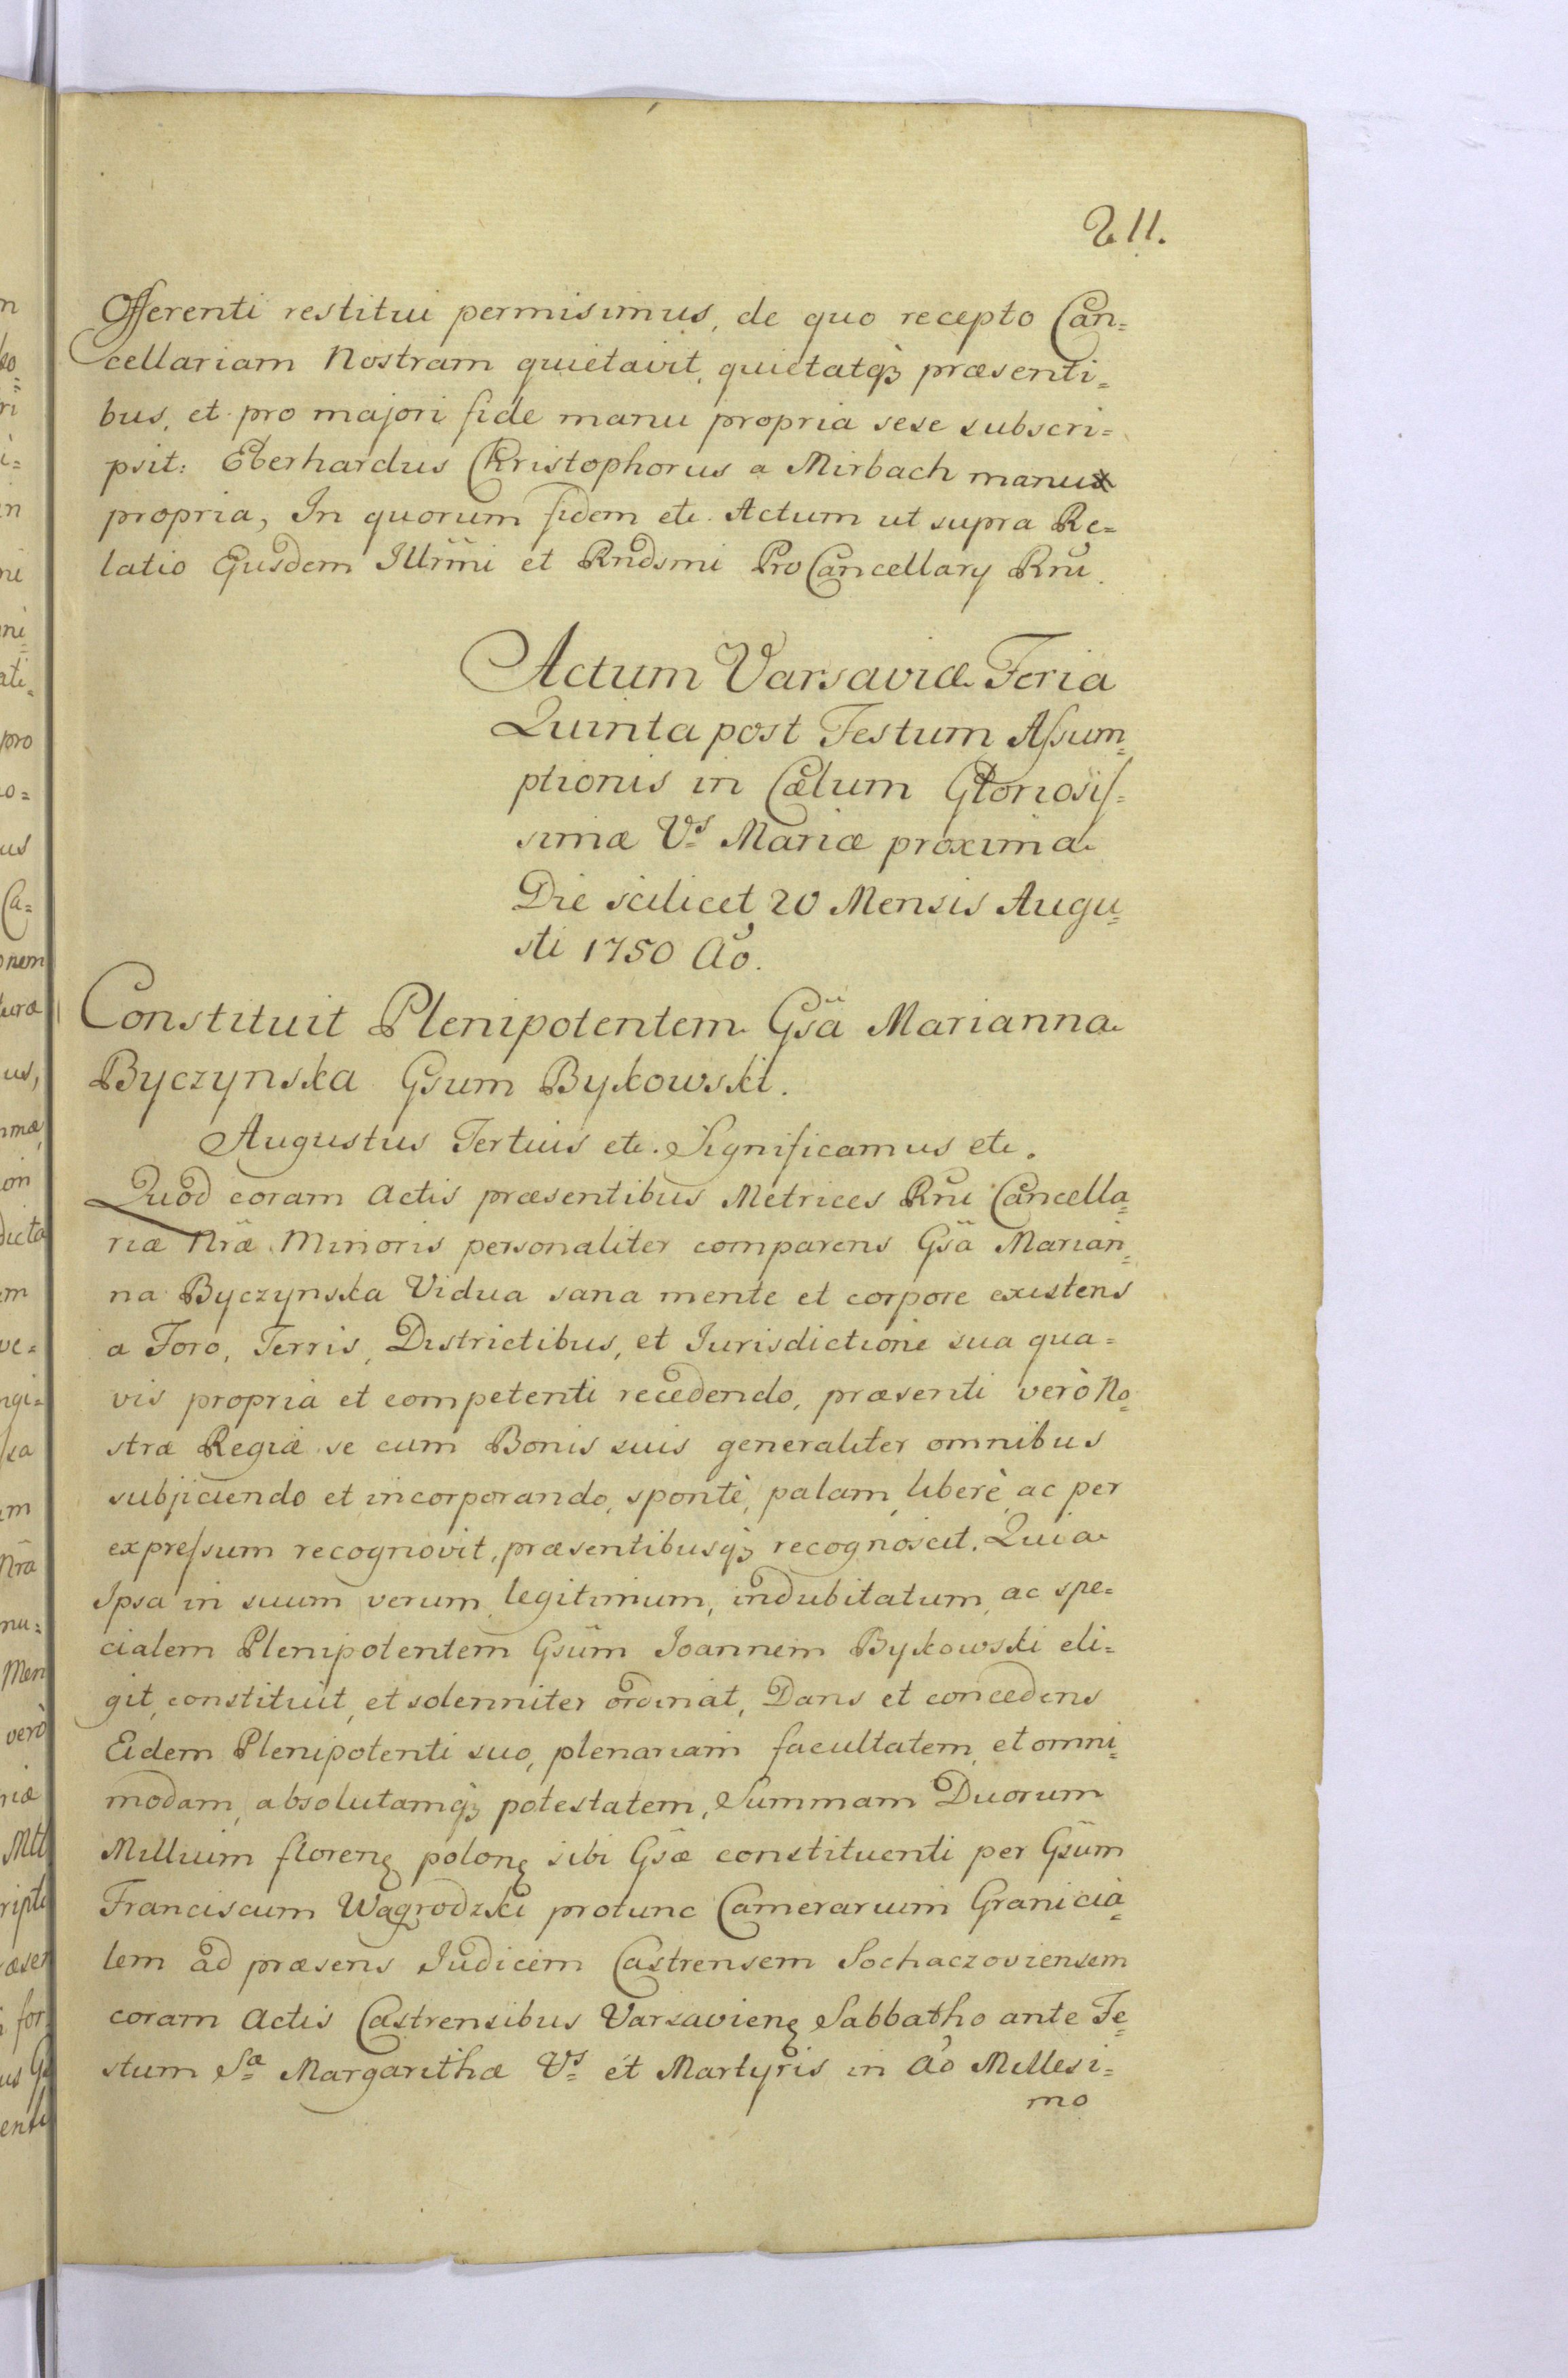 211.
Offerenti restitui permisimus, de quo recepto Can=
cellariam Nostram quietavit, quietatq₃ præsenti=
bus, et pro majori fide manu propria sese subscri=
psit: Eberhardus Christophorus a Mirbach manu
propria, In quorum fidem etc. Actum ut supra Re=
latio Ejusdem Illr̃mi et Rndsmi ProCancellary Rñi.
Actum Varsaviæ Feria
Quinta post Festum Aſsum=
ptionis in Cælum Gloriosiſ=
simæ Vs Mariæ proxima
Die scilicet 20 Mensis Augu=
sti 1750 Ao.
Constituit Plenipotentem Gsã Marianna
Byczynska Gsum Bykowski.
Augustus Tertius etc. Significamus etc.
Quod coram Actis præsentibus Metrices Rñi Cancella=
riæ Nræ Minoris personaliter comparens Gsã Marian=
na Byczynska Vidua sana mente et corpore existens
a Foro, Terris, Districtibus, et Jurisdictione sua qua=
vis propria et competenti recedendo, præsenti verò No=
stræ Regiæ se cum Bonis suis generaliter omnibus
subjiciendo et incorporando, spontè, palam, liberè, ac per
expreſsum recognovit, præsentibusq₃ recognoscit. Quia
Ipsa in suum verum, legitimum, indubitatum, ac spe=
cialem Plenipotentem Gsũm Joannem Bykowski eli=
git, constituit, et solenniter ordinat, Dans et concedens
Eidem Plenipotenti suo, plenariam facultatem, et omni=
modam, absolutamq₃ potestatem, Summam Duorum
Millium florenę polonę sibi Gsæ constituenti per Gsũm
Franciscum Wągrodzki protunc Camerarium Granicia=
lem ad præsens Judicem Castrensem Sochaczoviensem
coram Actis Castrensibus Varsavienę Sabbatho ante Fe=
stum Sæ Margarithæ Vs et Martyris in Ao Millesi=
mo